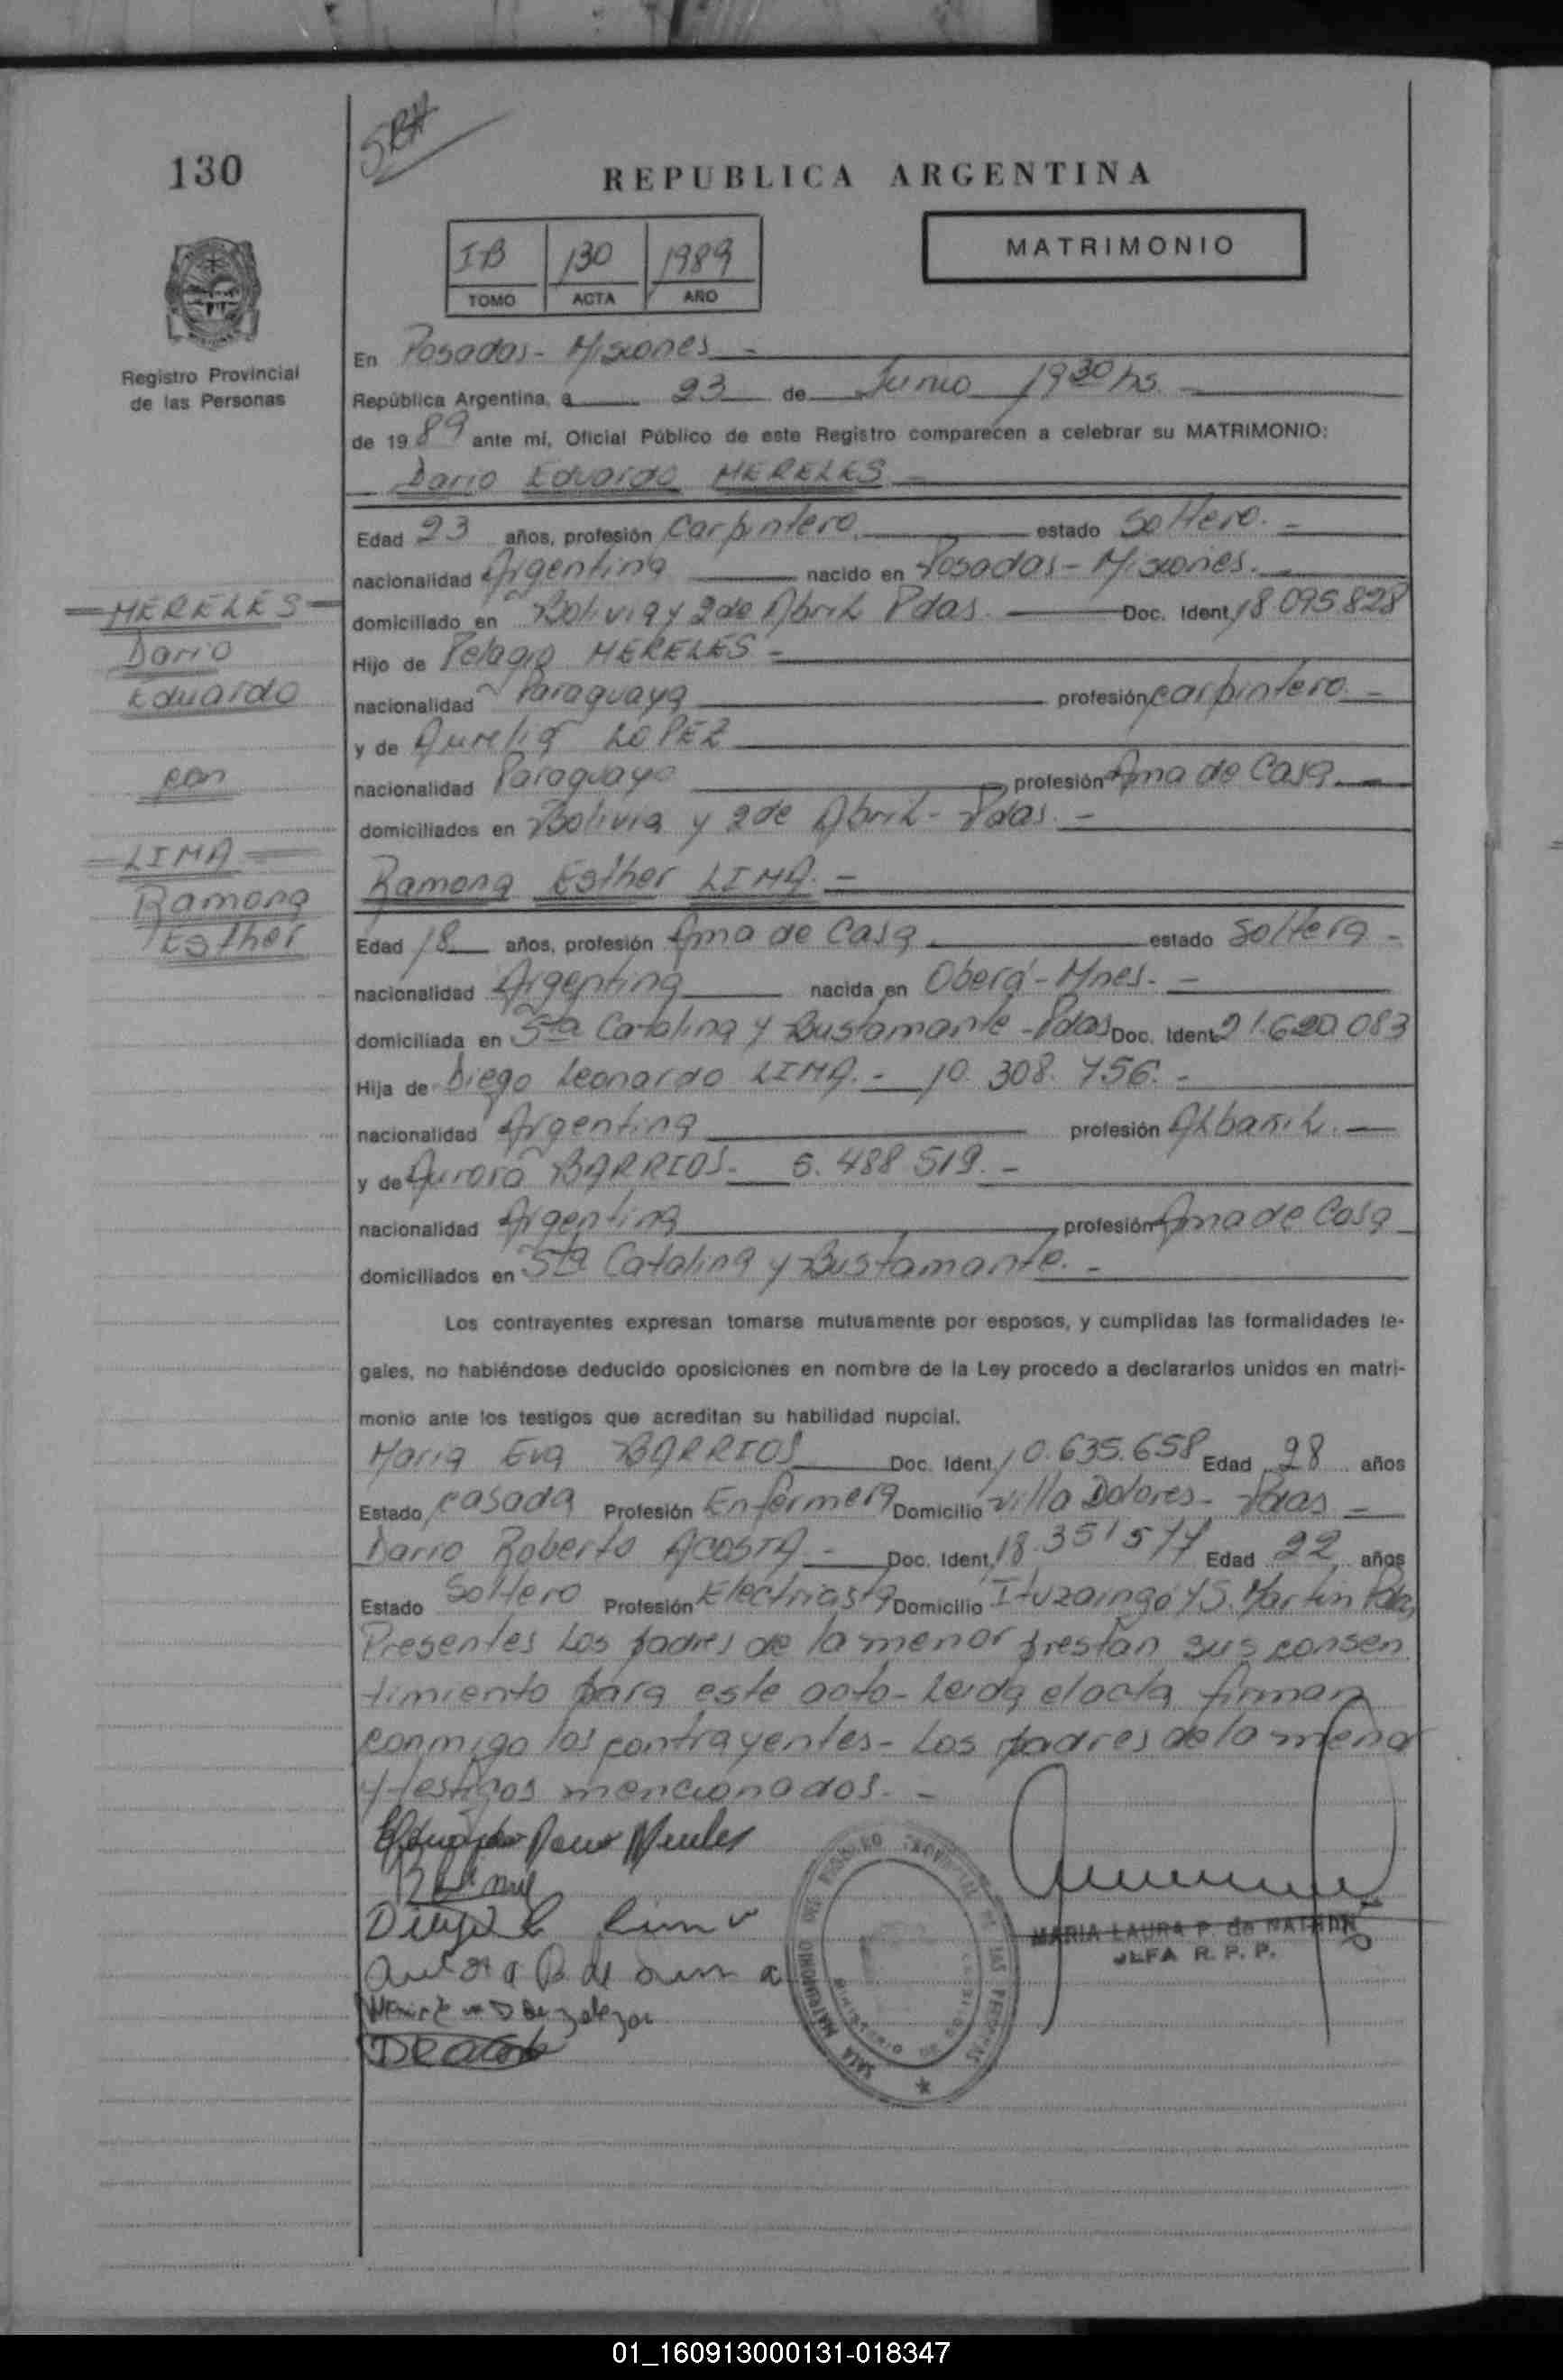 130
SRH
REPUBLICA ARGENTINA
IB 130 1989
TOMO ACTA AÑO
MATRIMONIO
Registro Provincial
de las Personas
En Posadas - Misiones -
República Argentina, a 23 de Junio 19 30 hs. -
de 1989 ante mí, Oficial Público de este Registro comparecen a celebrar su MATRIMONIO:
Dario Eduardo MERELES -
Edad 23 años, profesión Carpintero. estado Soltero. -
nacionalidad Argentina nacido en Posadas - Misiones. -
domiciliado en Bolivia y 2 de Abril Pdas. Doc. Ident. 18.095.828
Hijo de Pelagio MERELES -
nacionalidad Paraguaya profesión carpintero. -
y de Aurelia LOPEZ
nacionalidad Paraguaya profesión Ama de Casa. -
domiciliados en Bolivia y 2 de Abril - Pdas. -
MERELES
Dario
Eduardo
con
LIMA
Ramona
Esther
Ramona Esther LIMA. -
Edad 18 años, profesión Ama de Casa estado Soltera -
nacionalidad Argentina nacida en Oberá - Mnes. -
domiciliada en Sta Catalina y Bustamante - Pdas Doc. Ident. 21.620.083
Hija de Diego Leonardo LIMA. - 10.308.756. -
nacionalidad Argentina profesión Albañil. -
y de Aurora BARRIOS - 5.488.519. -
nacionalidad Argentina profesión Ama de Casa
domiciliados en Sta Catalina y Bustamante. -
Los contrayentes expresan tomarse mutuamente por esposos, y cumplidas las formalidades le-
gales, no habiéndose deducido oposiciones en nombre de la Ley procedo a declararlos unidos en matri-
monio ante los testigos que acreditan su habilidad nupcial.
Maria Eva BARRIOS Doc. Ident. 10.635.658 Edad 28 años
Estado casada Profesión Enfermera Domicilio Villa Dolores - Pdas -
Dario Roberto ACOSTA - Doc. Ident. 18.351577 Edad 22 años
Estado Soltero Profesión Electricista Domicilio Ituzaingó y S. Martin Pdas
Presentes Los padres de la menor prestan sus consen
timiento para este acto - Leida el acta firman
conmigo los contrayentes - Los padres de la menor
y testigos mencionados. -
MARIA LAURA P. de
JEFA R. P. P.
SALA MATRIMONIO
01_160913000131-018347